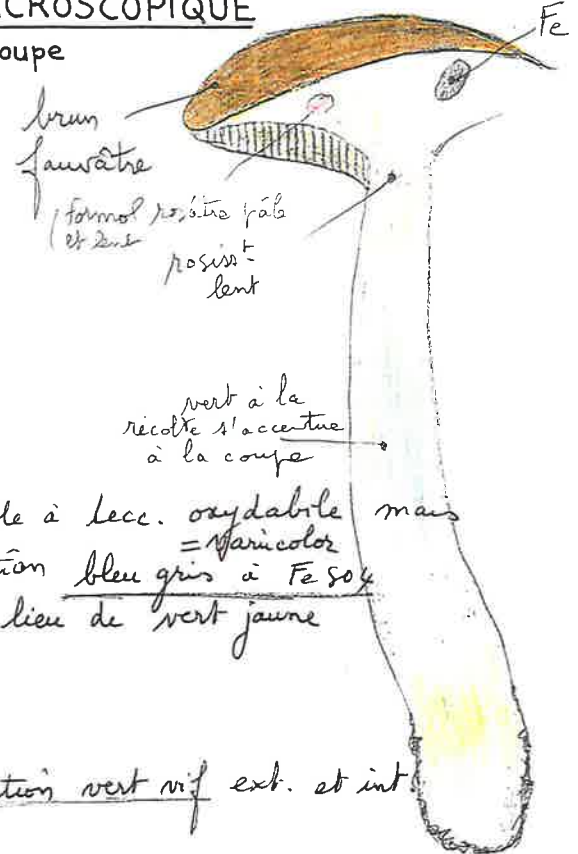 CROSCOPIQUE
oupe
Fe
brun
fauvâtre
(formol rosâtre pâle
et lent
rosisst
lent
vert à la
récolte s'accentue
à la coupe
le à Lecc. oxydabile mais
= Varicolor
tion bleu gris à FeSO4
lieu de vert jaune
ction vert vif ext. et int.